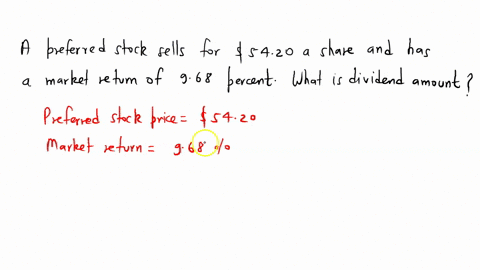 A preferred stock sells for $54.20 a share and has
a market return of 9.68 percent. What is dividend amount?
Preferred stock price = $54.20
Market return = 9.68 %